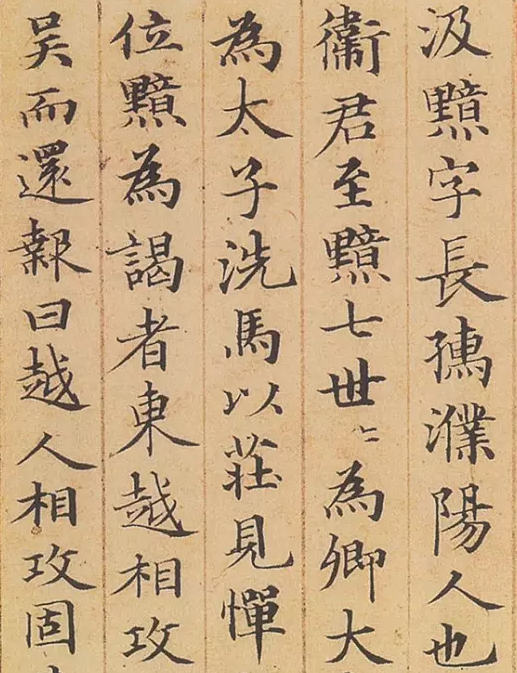 汲黯字長孺濮陽人也
衛君至黯七世〻為卿大
為太子洗馬以莊見憚
位黯為謁者東越相攻
吳而還報曰越人相攻固